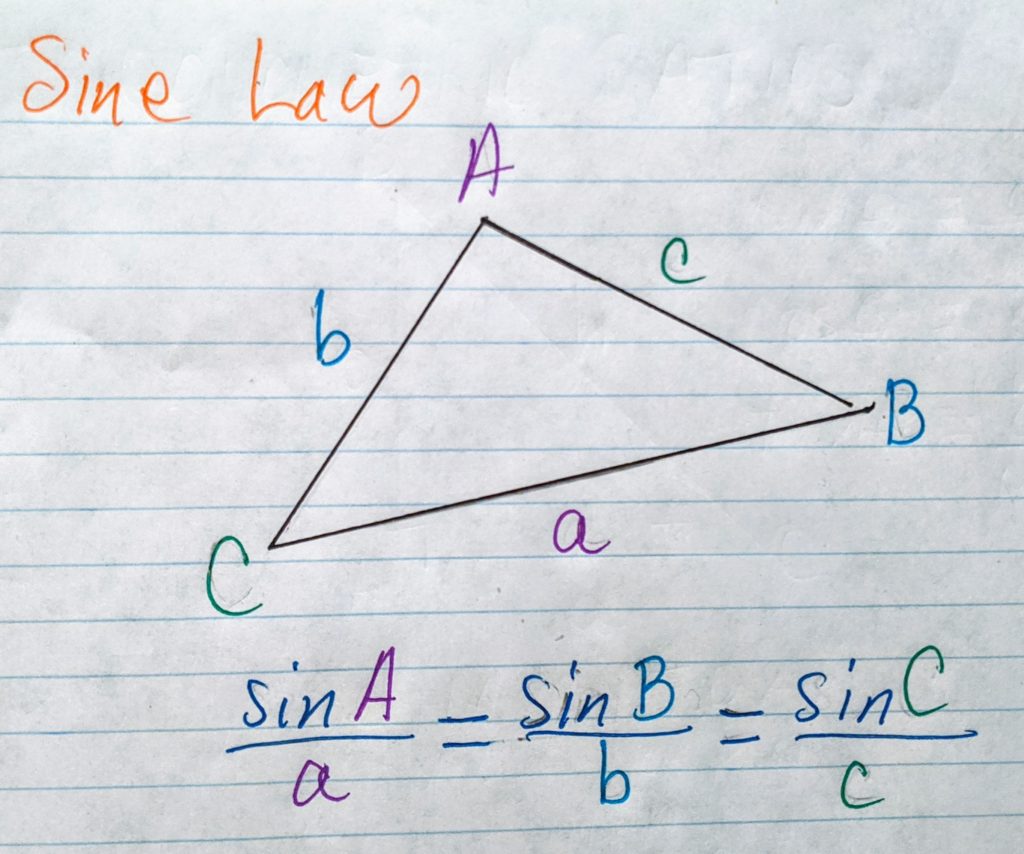 Sine Law
A
c
b
B
a
C
sin A / a = sin B / b = sin C / c